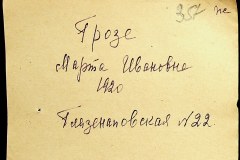 357 не
Грозе
Марта Ивановна
1920
Глазенаповская №22